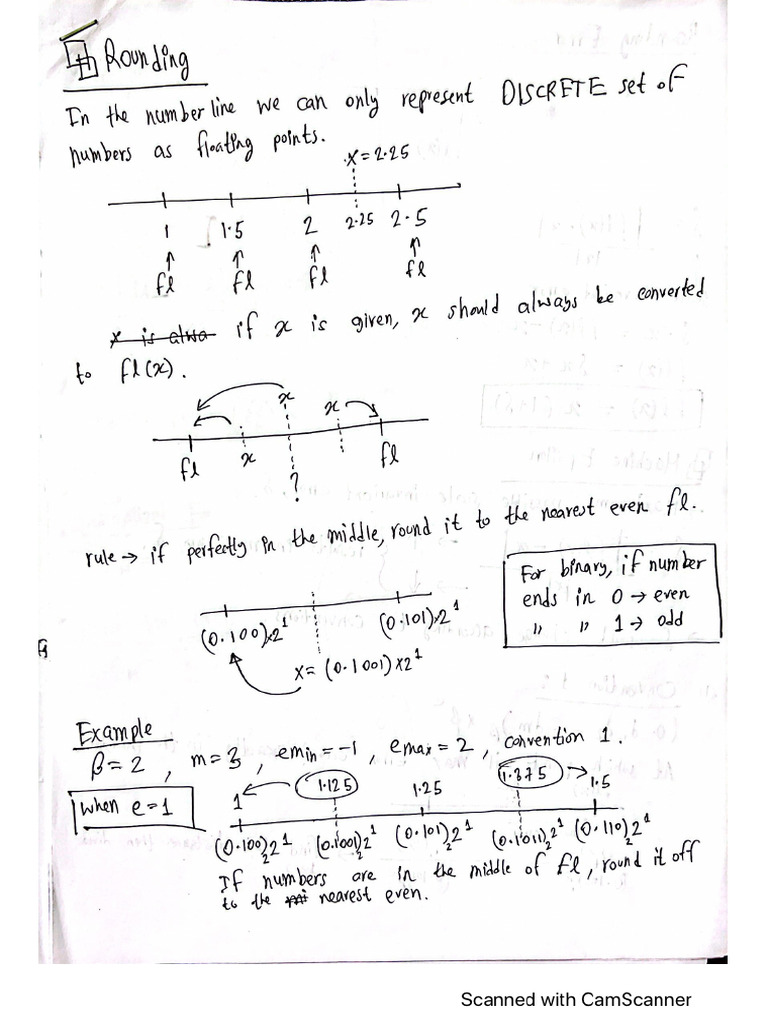 Rounding
In the number line we can only represent DISCRETE set of
numbers as floating points.
x = 2.25
1 1.5 2 2.25 2.5
↑ ↑ ↑ ↑
fl fl fl fl
x is alwa if x is given, x should always be converted
to fl(x).
x x
fl x fl
?
rule → if perfectly in the middle, round it to the nearest even fl.
For binary, if number
ends in 0 → even
" " 1 → odd
(0.100)x2¹ (0.101)x2¹
x = (0.1001) x2¹
Example
β = 2 , m = 3 , emin = -1 , emax = 2 , convention 1.
when e = 1
1 1.125 1.25 1.375 → 1.5
(0.100)₂2¹ (0.1001)₂2¹ (0.101)₂2¹ (0.1011)₂2¹ (0.110)₂2¹
If numbers are in the middle of fl, round it off
to the nearest even.
Scanned with CamScanner